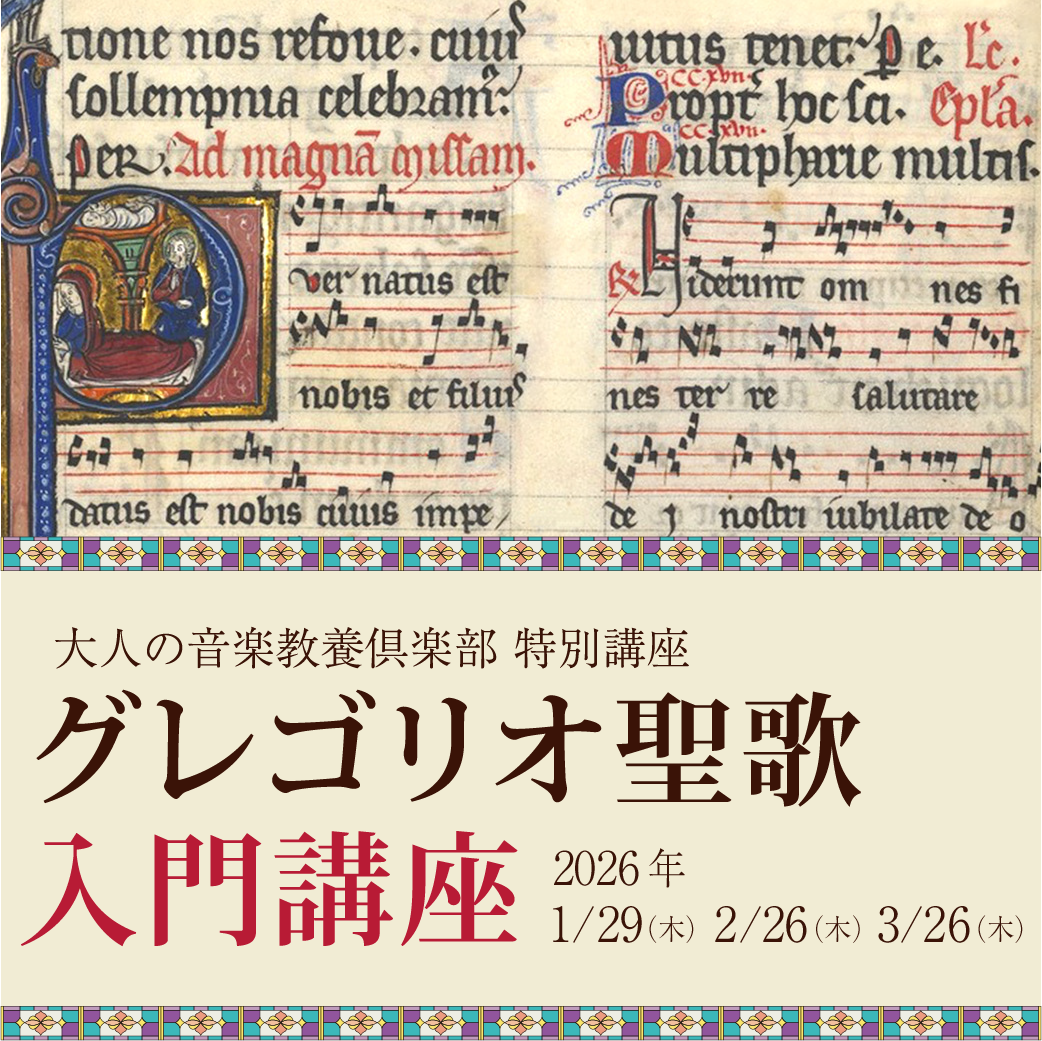 tione nos refoue. cuiuſ
ſollempnia celebram᷑:
per. Ad magnā miſſam.
Puer natus eſt
nobis et filiuſ
datus eſt nobis cuius impe
uitus tenet: Pe. Lc.
CC.xvii.
Propt hoc ſci. Epła.
CC.xvii.
Multipharie multiſ.
Viderunt om nes fi
nes ter re ſalutare
de i noſtri iubilate de o
大人の音楽教養倶楽部 特別講座
グレゴリオ聖歌
入門講座
2026年
1/29(木) 2/26(木) 3/26(木)